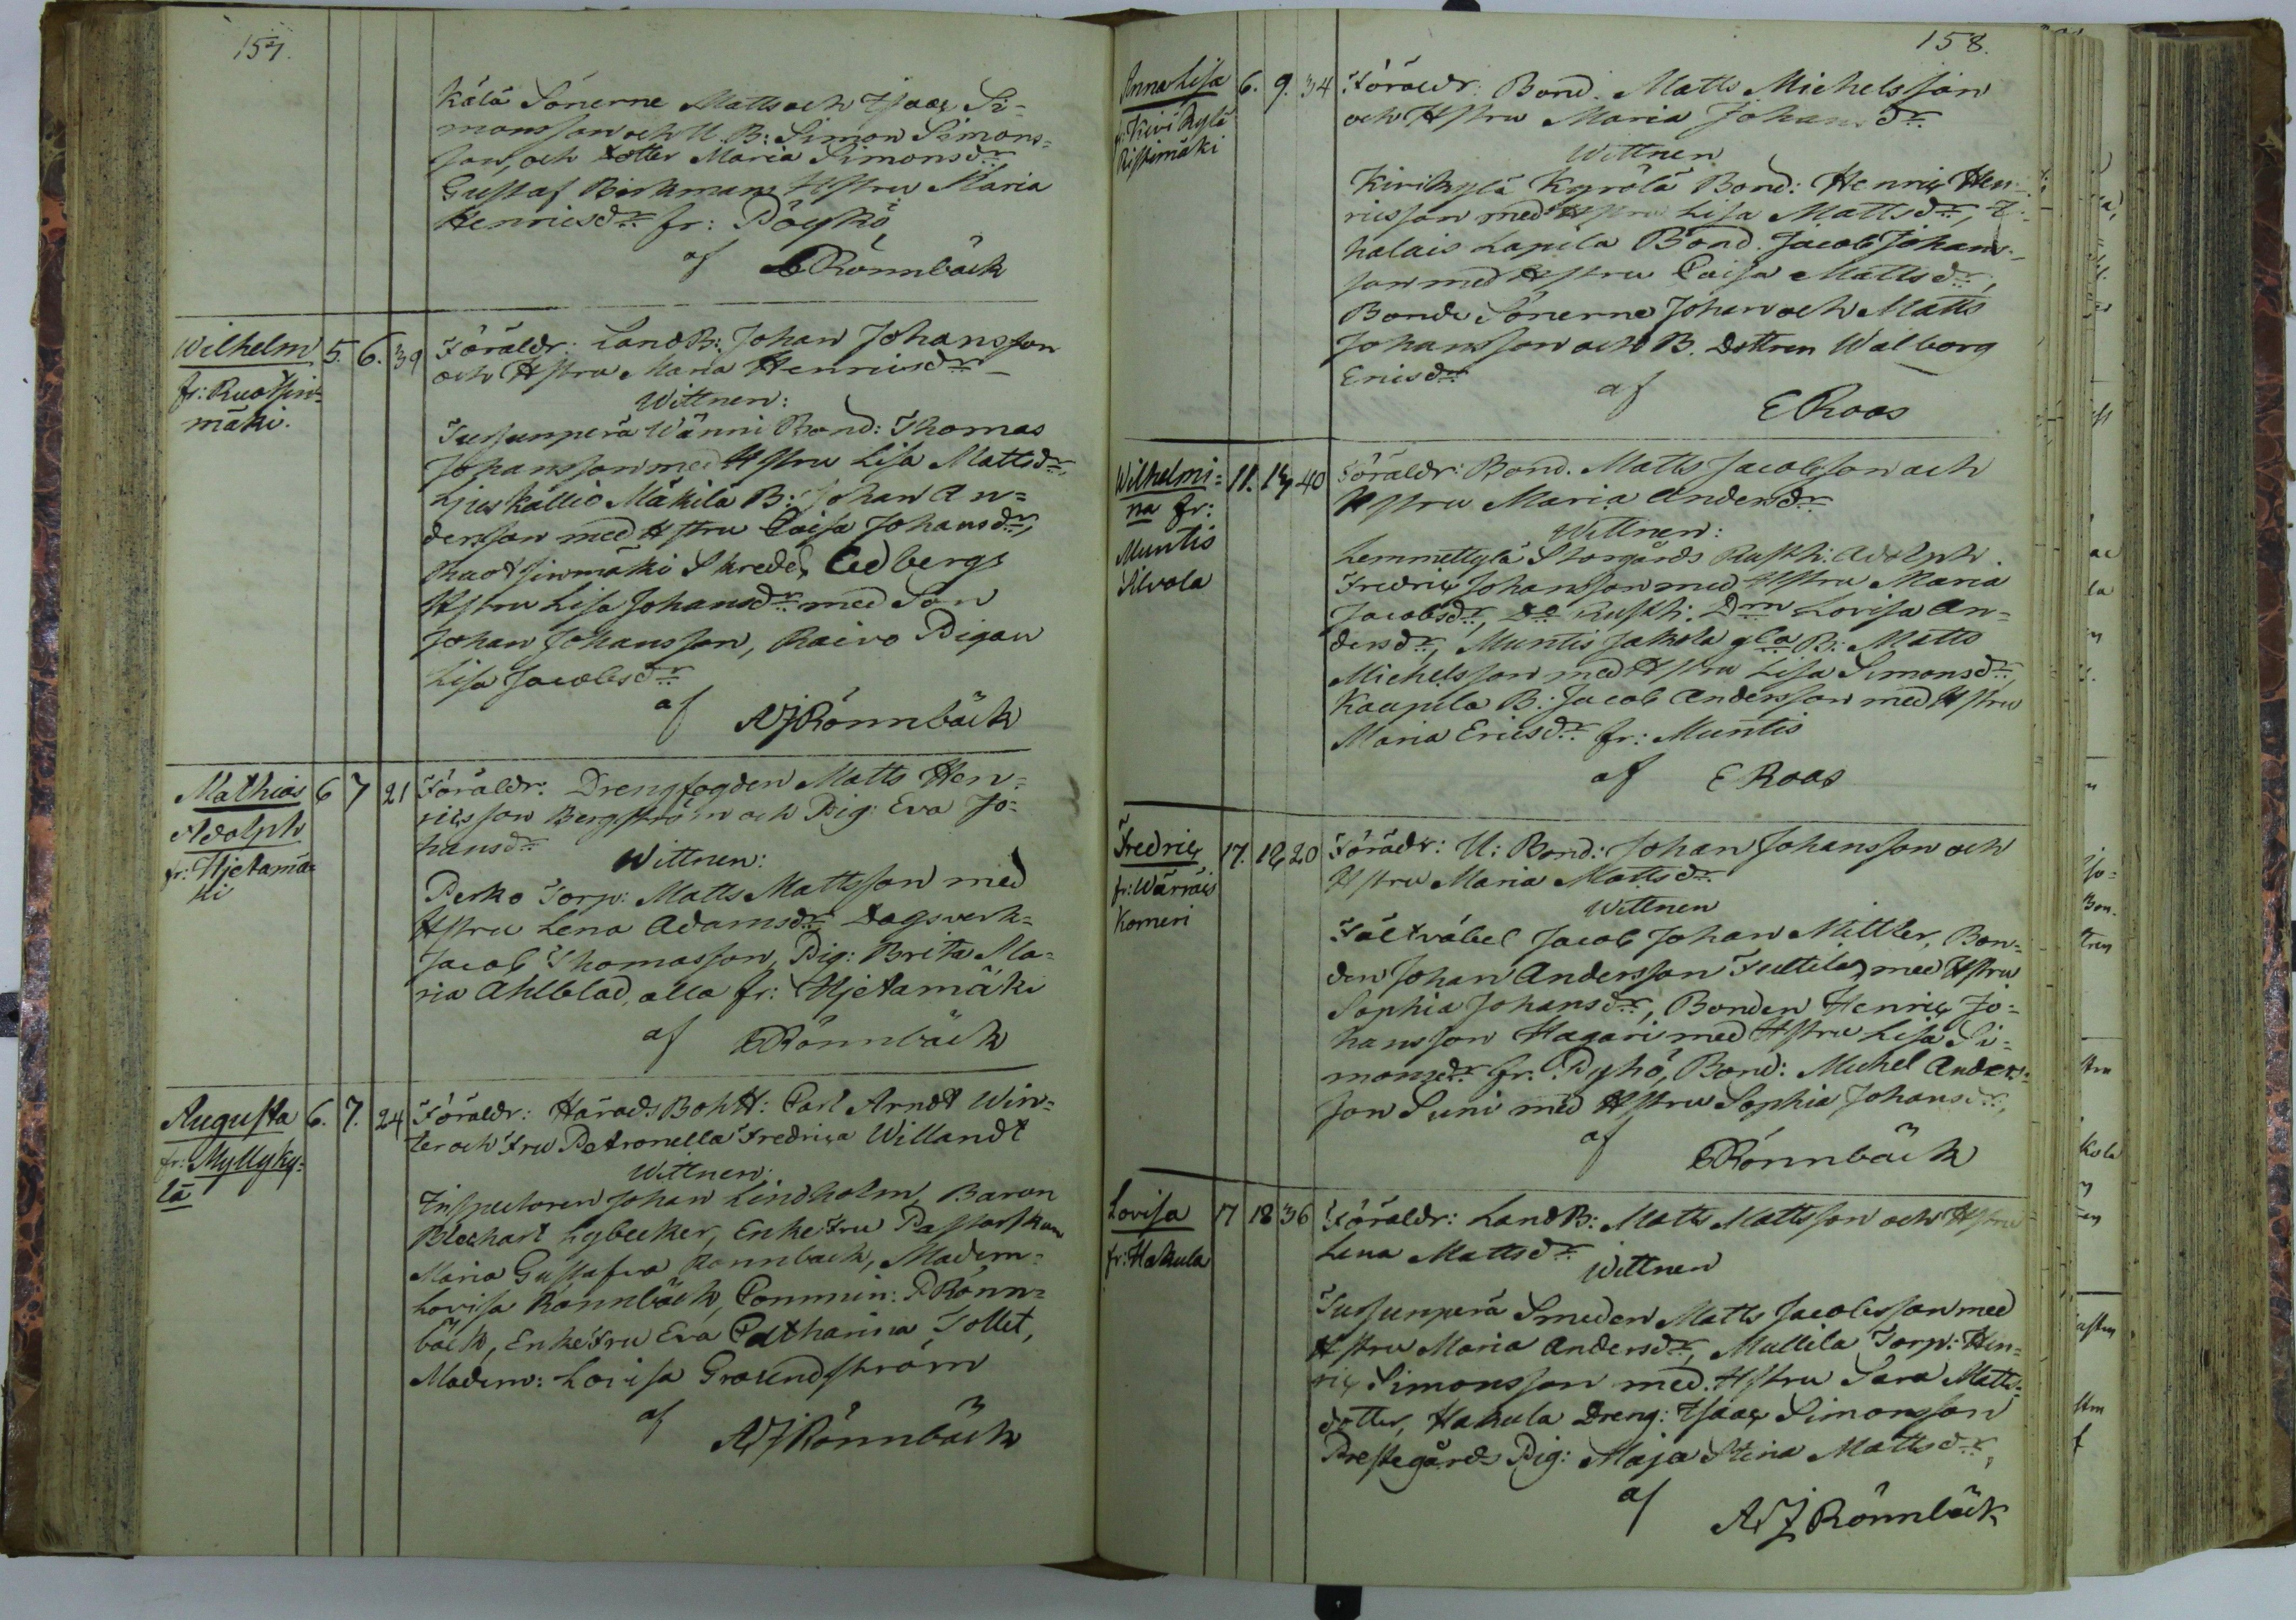 157.
kälä Sönerne Matts och Isaac Si-
monsson och U. B: Simon Simons-
son, och dotter Maria Simonsdr,
Gustaf Birkmans Hstru Maria
Henricsdr fr: Pöyhö,
af Rönnbäck
Wilhelm 5. 6. 39
fr: Ruotsin-
mäki.
Föräldr: LandB: Johan Johansson
och Hstru Maria Henricsdr
Wittnen:
Juusunperä Wänni Bond: Thomas
Johansson med Hstru Lisa Mattsdr,
Mäkilä B: Johan An-
dersson med Hstru Caisa Johansdr,
Ruotsinmäki Skredd. Cedbergs
Hstru Lisa Johansdr med Son
Johan Johansson, Raivo Pigan
Lisa Jacobsdr
af AJRönnbäck
Mathias 6 7 21
Adolph
fr: Hjetamä-
ki
Föräldr: Drengfogden Matts Hen-
ricsson Bergström och Pig: Eva Jo-
hansdr
Wittnen:
Perko Torp: Matts Mattsson med
Hstru Lena Adamsdr, Dagsverk-
Jacob Thomasson, Pig: Brita Ma-
ria Ahlblad, alla fr: Hjetamäki
af Rönnbäck
Augusta 6. 7. 24
fr: Myllyky-
lä
Föräldr: Härads BohH: Carl Arndt Win-
ter och Fru Petronella Fredrica Willandt
Wittnen:
Inspectoren Johan Lindholm, Baron
Blechart Lybecker, Enkefru Pastorskan
Maria Gustafva Rönnback, Madem-
Lovisa Rönnbäck, Commin: PRönn-
bäck, Enkefru Eva Catharina Tollet,
Madem: Lovisa Graundström
af AJRönnbäck
158.
Anna Lisa 6. 9. 34
fr: Kivi Kylä
Ristimäki
Föräldr: Bond. Matts Michelsson
och Hstru Maria Johansdr
Wittnen
Kivikylä Kyrölä Bond: Henric Hen-
ricsson med Hstru Lisa Mattsdr, I-
halais Lapila Bond. Jacob Johans-
son med Hstru Caisa Mattsdr,
Bonde Sönerne Johan och Matts
Johansson och B. Dottren Walborg
Ericsdr
af ERoos
Wilhelmi- 11. 14 40
na fr:
Muntis
Alvola
Föräldr: Bond. Matts Jacobsson och
Hstru Maria Andersdr
Wittnen:
Lemmettylä Storgårds Rusth: Adolph
Fredric Johansson med Hstru Maria
Jacobsdr, Do Rusth: Drn Lovisa An-
dersdr, Muntis Jakola gla B: Matts
Michelsson med Hstru Lisa Simonsdr,
Kaapila B: Jacob Andersson med Hstru
Maria Ericsdr fr: Muntis
af ERoos
Fredric 17. 18, 20
fr: Wärräis
Komeri
Förädr: U: Bond: Johan Johansson och
Hstru Maria Mattsdr
Wittnen
Fältväbel Jacob Johan Mittler, Bon-
den Johan Andersson Juttila med Hstru
Sophia Johansdr, Bonden Henric Jo-
hansson Hagari med Hstru Lisa Si-
monsdr fr: Pyhö, Bond: Michel Anders-
son Suni med Hstru Sophia Johansdr,
af Rönnbäck
Lovisa 17 18 36
fr: Hakula
Föräldr: LandB: Matts Mattsson och Hstru
Lena Mattsdr
Wittnen
Juusunperä Smeden Matts Jacobsson med
Hstru Maria Andersdr, Mullila Torp: Hen-
ric Simonsson med Hstru Sara Matts-
dotter, Hakula Dreng: Isaac Simonsson
Prestegårds Pig: Maja Stina Mattsdr,
af AJRönnbäck